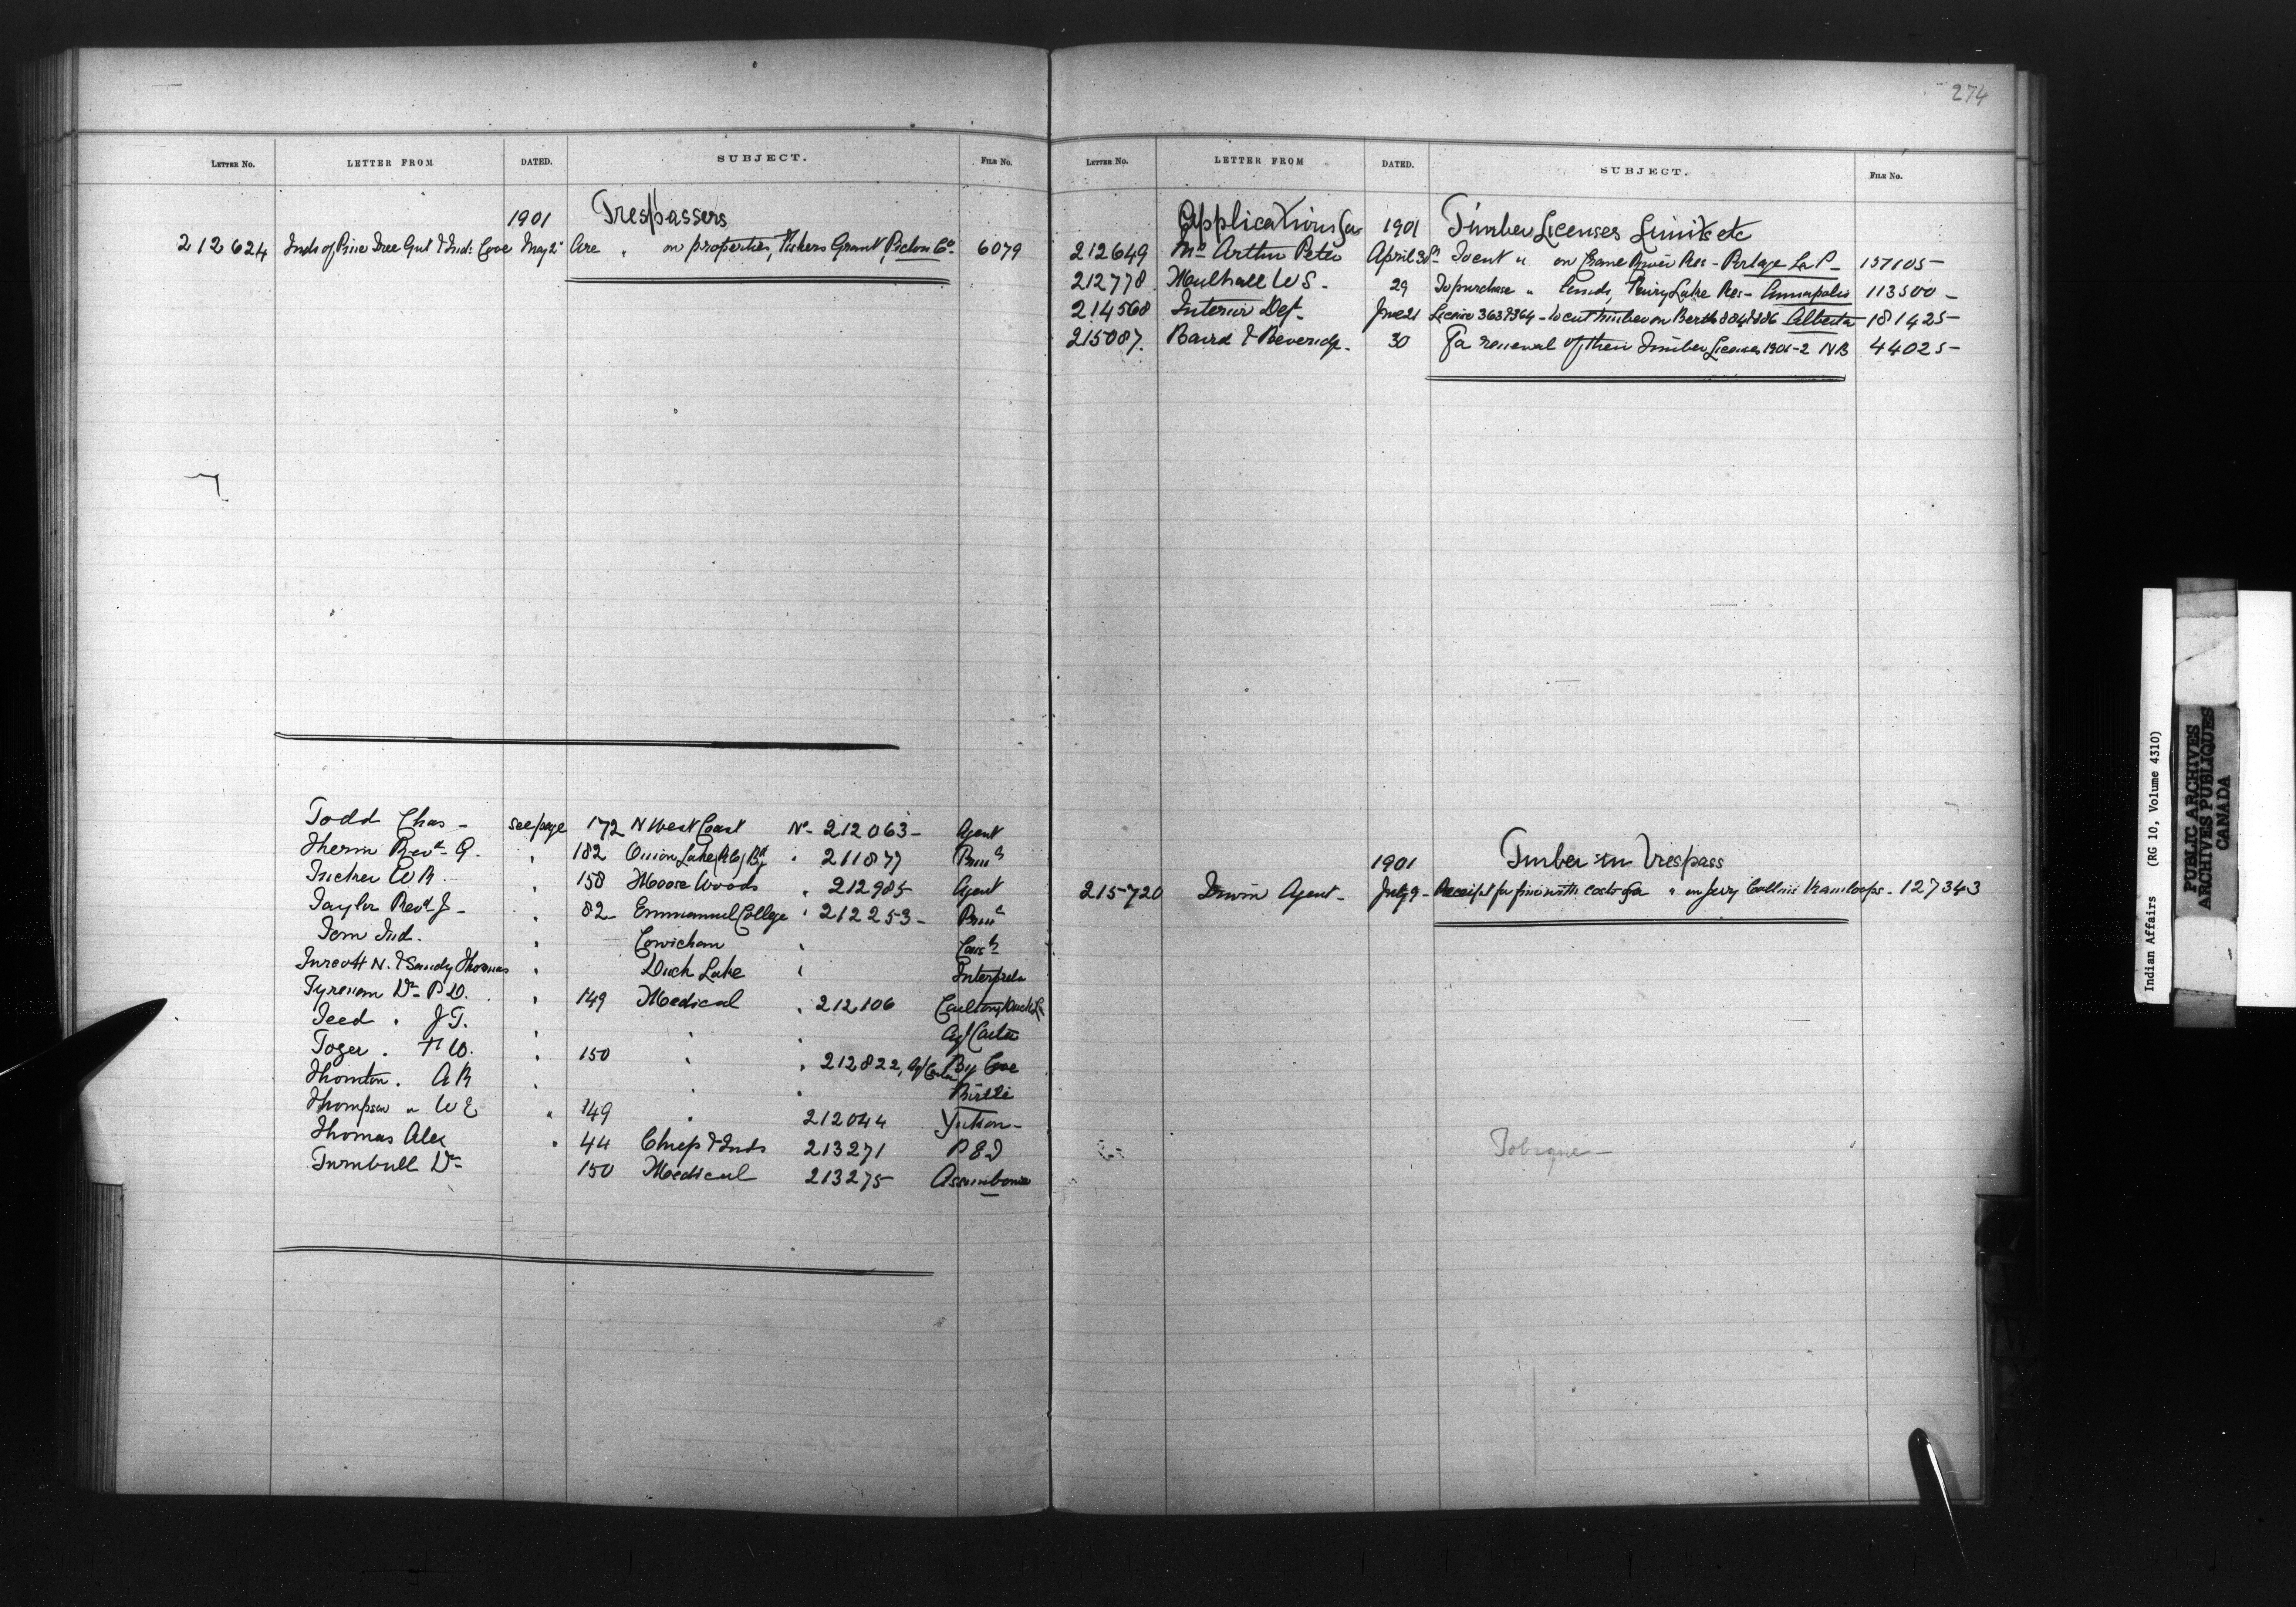 LETTER NO. LETTER FROM DATED. SUBJECT. FILE NO.
1901 Trespassers
212624 Inds of Pine Tree Gut & Inds Cove May 2 Are " on properties, Fishers Grant, Pictou Co. 6079
Todd Chas - see page 172 N West Coast No- 212063- Agent
Therin Revd- G. " 182 Onion Lake (RC) Bdg " 211877
Tucker W R. " 158 Moose Woods " 212985 Agent
Taylor Revd J- " 82 Emmanuel College " 212253-
Tom Ind. " Cowichan "
N. & Sandy Thomas " Duck Lake " Interpreter
Dr- P D. " 149 Medical " 212106 Carlton, Duck L
Teed " J T. " " "
Tozer " H W. " 150 " " 212822, Big Cove
Thornton " A R " " " Birtle
Thompson " W E " 149 " 212044 Yukon-
Thomas Alex " 44 Chiefs & Inds 213271 P E I
Turnbull Dr- 150 Medical 213275 Assiniboine
274
LETTER NO. LETTER FROM DATED. SUBJECT. FILE NO.
Applications for 1901 Timber Licenses Limits etc
212649 Mc Arthur Peter April 30 To cut " on Crane River Res - Portage La P- 157105-
212778 Mulhall W S- 29 To purchase " lands, Fairy Lake Res- Annapolis 113500-
214568 Interior Dept- June 21 License 363 & 364 - to cut timber on Berth 804 & 806 Alberta 181425-
215087. Baird & Beveridge- 30 For renewal of their Timber Licenses 1901-2 N B 44025-
1901 Timber in Trespass
215720 Irwin Agent- July 9- Receipt for fine with costs for " on Jerry Collins Kamloops- 127343
Tobique-
Indian Affairs (RG 10, Volume 4310)
PUBLIC ARCHIVES
ARCHIVES PUBLIQUES
CANADA